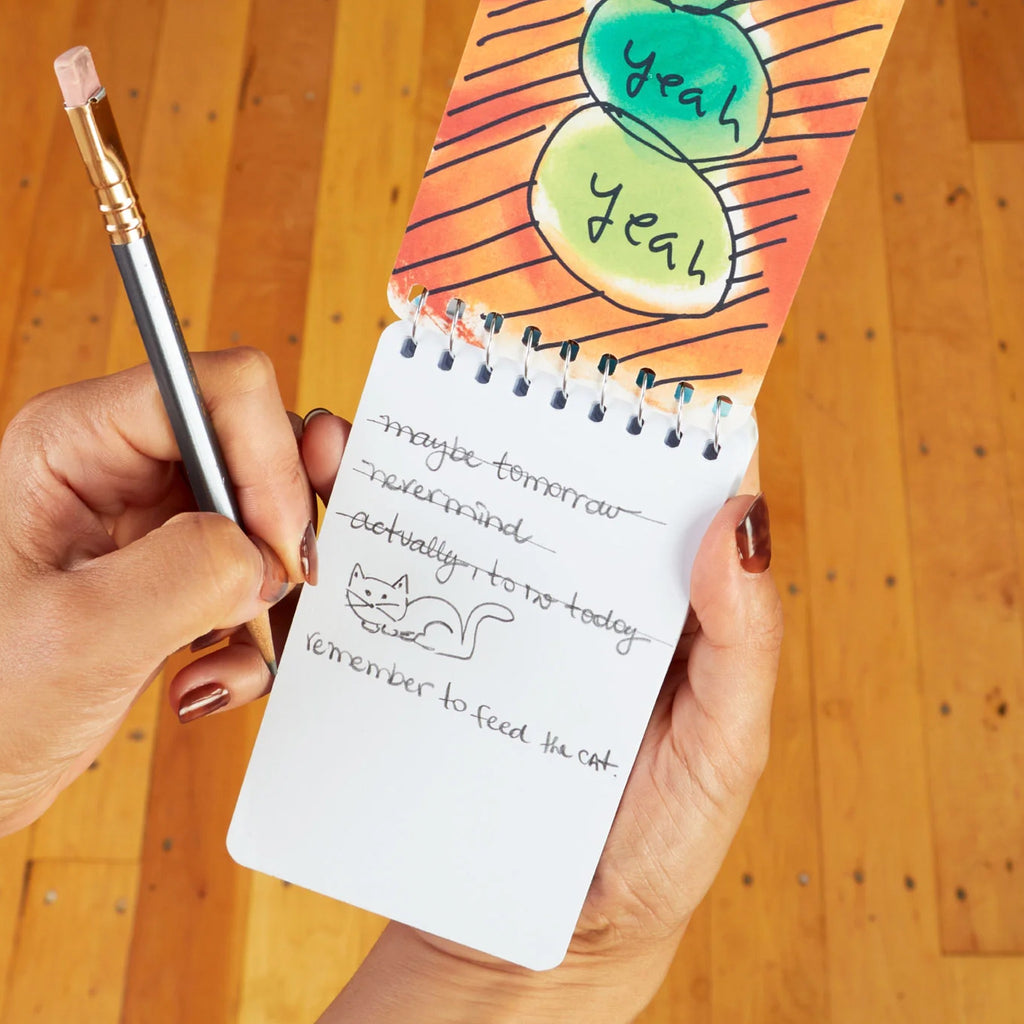 yeah
yeah
maybe tomorrow
nevermind
actually, to no today
remember to feed the cat.